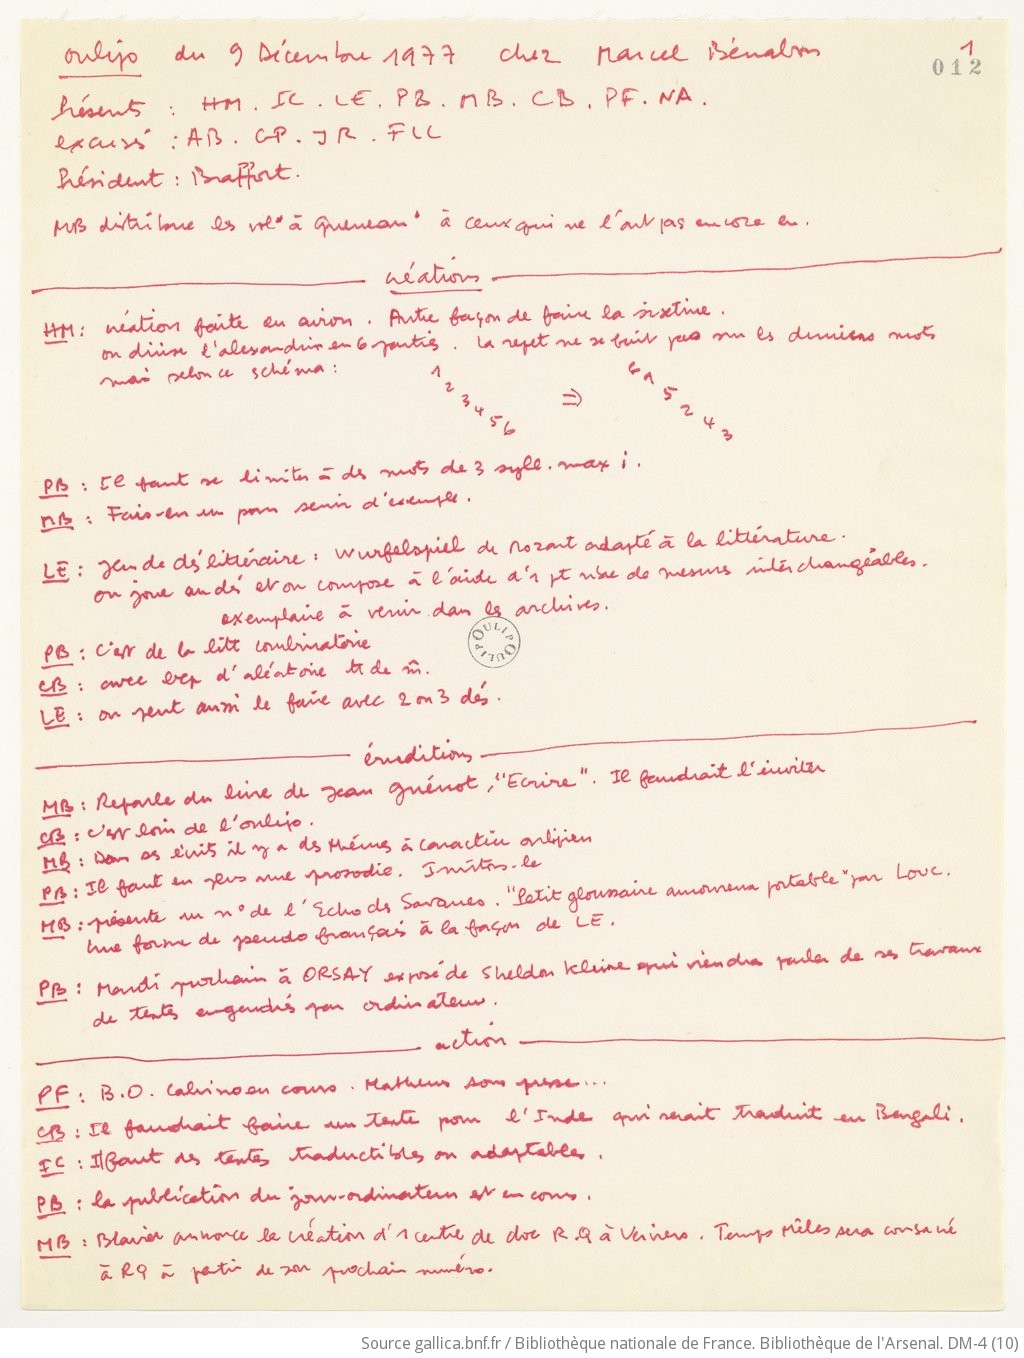 oulipo du 9 Décembre 1977 chez Marcel Bénabou
1
012
Présents : HM. IC. LE. PB. MB. CB. PF. NA.
excusés : AB. GP. JR. FLL
Président : Braffort.
MB distribue les vol "à Queneau" à ceux qui ne l'ont pas encore eu.
créations
HM : création faite en avion. Autre façon de faire la sixtine.
on divise l'alexandrin en 6 parties. La repet ne se fait pas sur les derniers mots
mais selon ce schéma :
1 2 3 4 5 6 ⇒ 6 1 5 2 4 3
PB : Il faut se limiter à des mots de 3 syll. max i.
MB : Fais-en un pour servir d'exemple.
LE : Jeu de dés littéraire : Wurfelspiel de Mozart adapté à la littérature.
on joue au dés et on compose à l'aide d'1 pt de mesures interchangeables.
exemplaire à venir dans les archives.
OULIPO OULIPO
PB : C'est de la litt combinatoire
CB : avec bcp d'aléatoire tt de m̂.
LE : on peut aussi le faire avec 2 ou 3 dés.
éruditions
MB : Reparle du livre de Jean Guénot, "Ecrire". Il faudrait l'inviter
CB : C'est loin de l'oulipo.
MB : Dans ses écrits il y a des thèmes à caractère oulipien
PB : Il faut en plus une prosodie. Invitons-le
MB : présente un n° de l'Echo des Savanes. "Petit gloussaire amoureux portable" par Louc.
Une forme de pseudo français à la façon de LE.
PB : Mardi prochain à ORSAY exposé de Sheldon Kleine qui viendra parler de ses travaux
de textes engendrés par ordinateur.
action
PF : B.O. Calvino en cours. Mathews sous presse...
CB : Il faudrait faire un texte pour l'Inde qui serait traduit en Bengali.
IC : Il faut des textes traductibles ou adaptables.
PB : la publication du jour-ordinateur est en cours.
MB : Blavier annonce la création d'1 centre de doc R.Q à Verviers. Temps Mêlés sera consacré
à RQ à partir de son prochain numéro.
Source gallica.bnf.fr / Bibliothèque nationale de France. Bibliothèque de l'Arsenal. DM-4 (10)